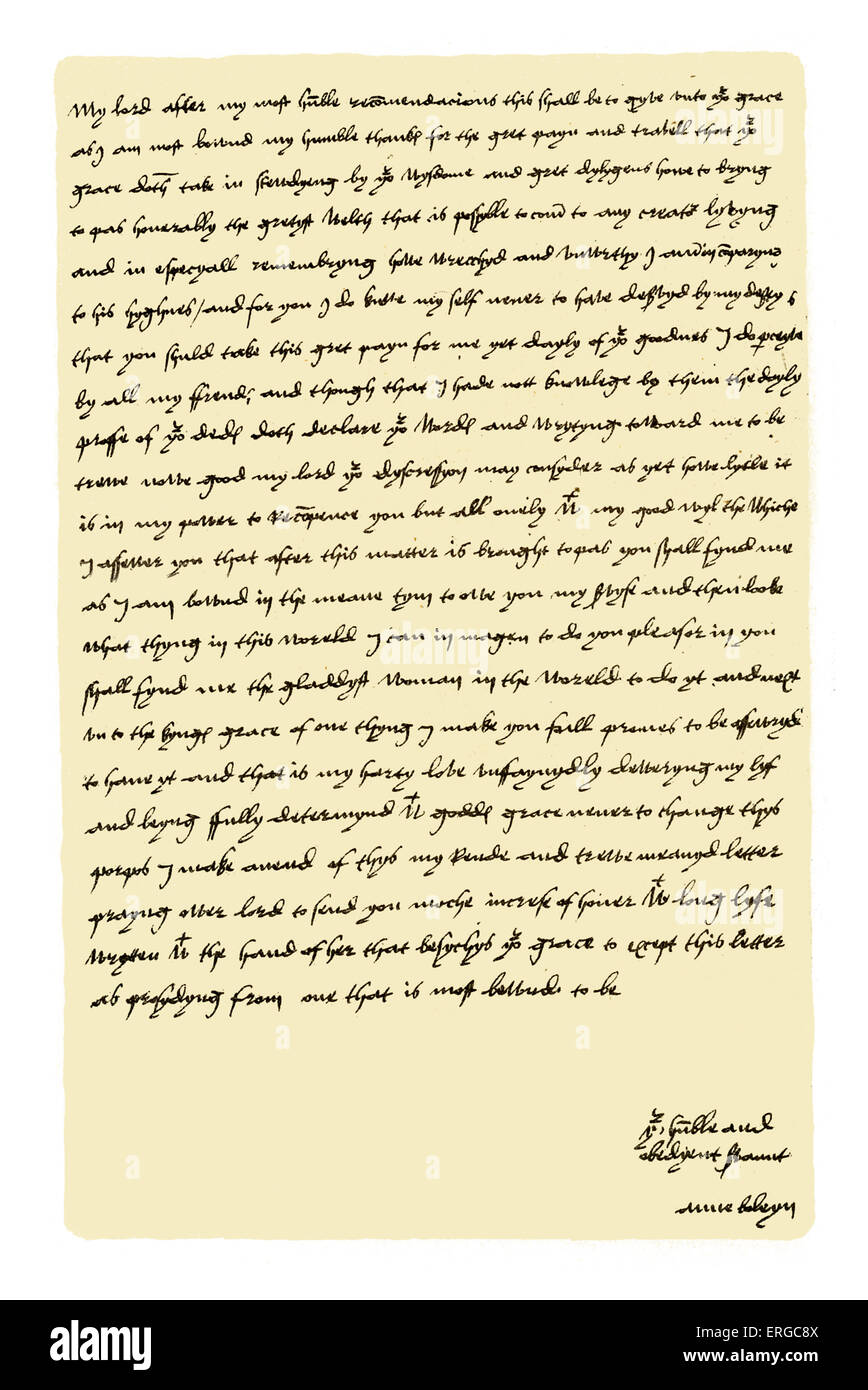 My lord after my most hūble recōmendacions this shall be to gyve unto yor grace
as I am most bownd my humble thanks for the gret payn and travell that yor
grace doth take in stewdyeng by yor wysdome and gret dylygens howe to bryng
to pas honerably the gretyst welth that is possyble to com to any creator lyvyng
and in especyall remembryng howe wrecchyd and unwrthy I am in cōparyng
to his hyghnes / and for you I do knowe my self never to have deservyd by my deserts
that you shuld take this gret payn for me yet dayly of yor goodnes I do perceyve
by all my ffrends and though that I hade nott knowlege by them the dayly
proffe of yor deds doth declare yor words and wrytyng toward me to be
trewe nowe good my lord yor dyscressyon may consyder as yet howe lytle it
is in my power to recōpence you but all onely wt my good wyl the whiche
I assewer you that after this matter is brought to pas you shall fynd me
as I am bownd in the meane tym to owe you my servyse and then looke
what thyng in this woreld I can inmagen to do you pleasor in you
shall fynd me the gladdyst woman in the woreld to do yt and next
unto the kyngs grace of one thyng I make you full promes to be assewryd
to have yt and that is my harty love unffaynydly dewering my lyf
and beyng ffully determynd wt godds grace never to change thys
porpos I make anend of thys my rewde and trewe meanyd letter
prayng ower lord to send you moche increse of honer wt long lyfe
wrytten wt the hand of her that besychys yor grace to except this letter
as prosydyng from one that is most bownde to be
yor hūble and
obedyent servant
anne boleyn
alamy
a
Image ID: ERGC8X
www.alamy.com